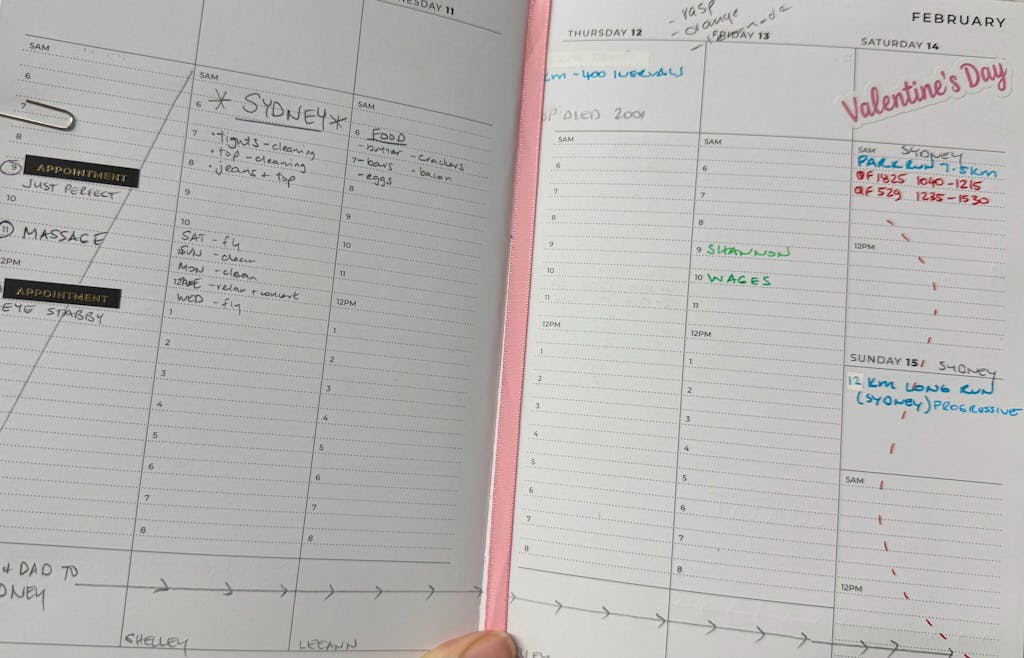 SDAY 11
5AM
6
7
8
9
APPOINTMENT
JUST PERFECT
10
11
MASSAGE
2PM
APPOINTMENT
EYE STABBY
& DAD TO
DNEY
5AM
6
* SYDNEY *
7
• tights - cleaning
• top - cleaning
8
• jeans + top
9
10
SAT - fly
SUN - clean
MON - clean
12PM
TUE - relax + concert
WED - fly
1
2
3
4
5
6
7
8
SHELLEY
5AM
6
FOOD
- butter - crackers
7
- bars - bacon
- eggs
8
9
10
11
12PM
1
2
3
4
5
6
7
8
LEEANN
FEBRUARY
- rasp
- orange
THURSDAY 12
KM - 400 INERVALS
P DIED 2001
5AM
6
7
8
9
10
11
12PM
1
2
3
4
5
6
7
8
FRIDAY 13
5AM
6
7
8
9 SHANNON
10 WAGES
11
12PM
1
2
3
4
5
6
7
8
SATURDAY 14
Valentine's Day
5AM SYDNEY
PARKRUN 7.5KM
QF 1825 1040-1215
QF 529 1235-1530
12PM
SUNDAY 15 SYDNEY
12 KM LONG RUN
(SYDNEY) PROGRESSIVE
5AM
12PM